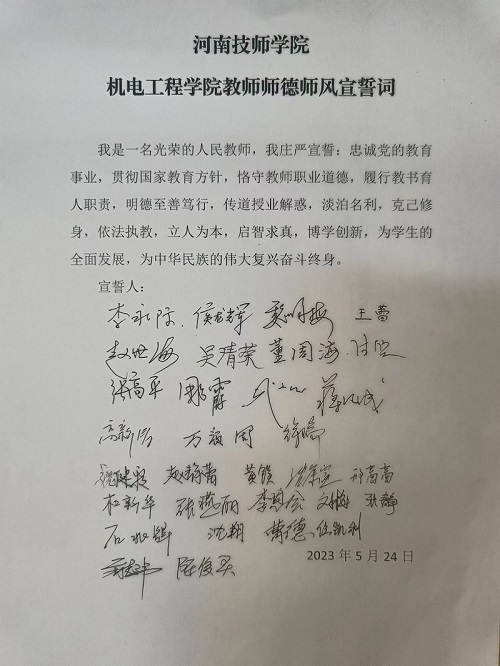 河南技师学院
机电工程学院教师师德师风宣誓词
我是一名光荣的人民教师，我庄严宣誓：忠诚党的教育
事业，贯彻国家教育方针，恪守教师职业道德，履行教书育
人职责，明德至善笃行，传道授业解惑，淡泊名利，克己修
身，依法执教，立人为本，启智求真，博学创新，为学生的
全面发展，为中华民族的伟大复兴奋斗终身。
宣誓人：
侯龙辉 王蕾
赵世海 吴清荣 董周海
张高平
黄毅
杜新华 张燕丽 张静
沈翔
2023年5月24日